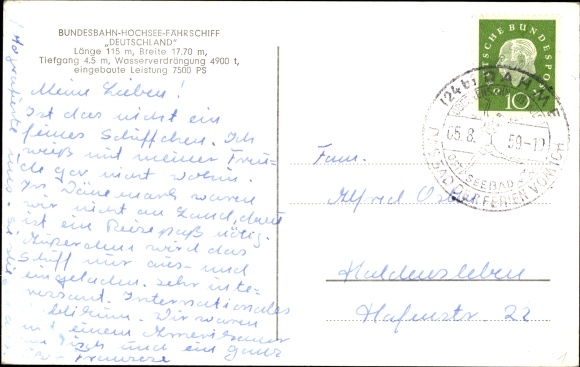 BUNDESBAHN-HOCHSEE-FÄHRSCHIFF
„DEUTSCHLAND"
Länge 115 m, Breite 17.70 m,
Tiefgang 4,5 m, Wasserverdrängung 4900 t,
eingebaute Leistung 7500 PS
Meine Lieben!
Ist das nicht ein
feines Schiffchen. Ich
weiß mit meiner Freu-
de gar nicht wohin.
In Dänemark waren
wir nicht an Land, dort
ist ein Reisepaß nötig.
Außerdem wird das
Schiff nur aus- und
eingeladen. Sehr inte-
ressant. Internationales
Publikum. Wir waren
mit einem Amerikaner
am Tisch und ein ganz
Franzose
DEUTSCHE BUNDESPOST
10
(24b) DAHME
05.8. 59-10
OSTSEEBAD
Fam.
Alfred
Haldensleben
Hafenstr. 22
1